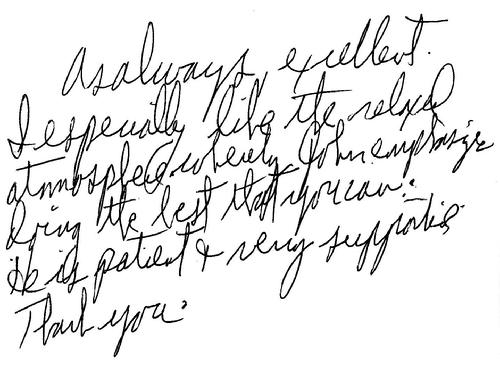 As always, excellent.
I especially like the relaxed
atmosphere whereby John emphasize
doing the best that you can.
He is patient & very supportive
Thank you.